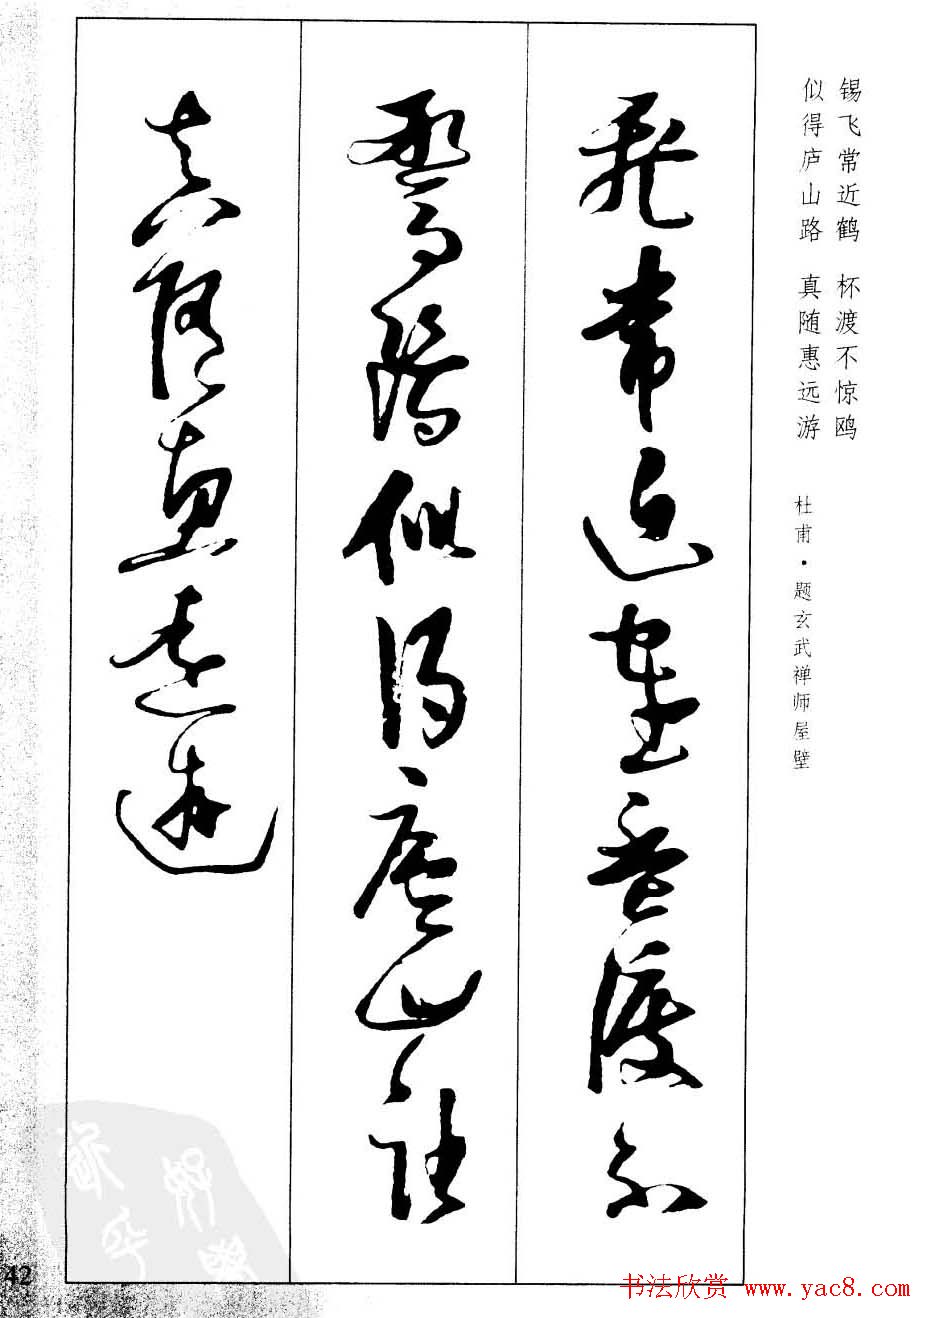 锡飞常近鹤 杯渡不惊鸥
似得庐山路 真随惠远游
杜甫·题玄武禅师屋壁
飛常近鶴盃渡不
驚鷗似得廬山路
真随惠遠遊
42
书法欣赏 www.yac8.com